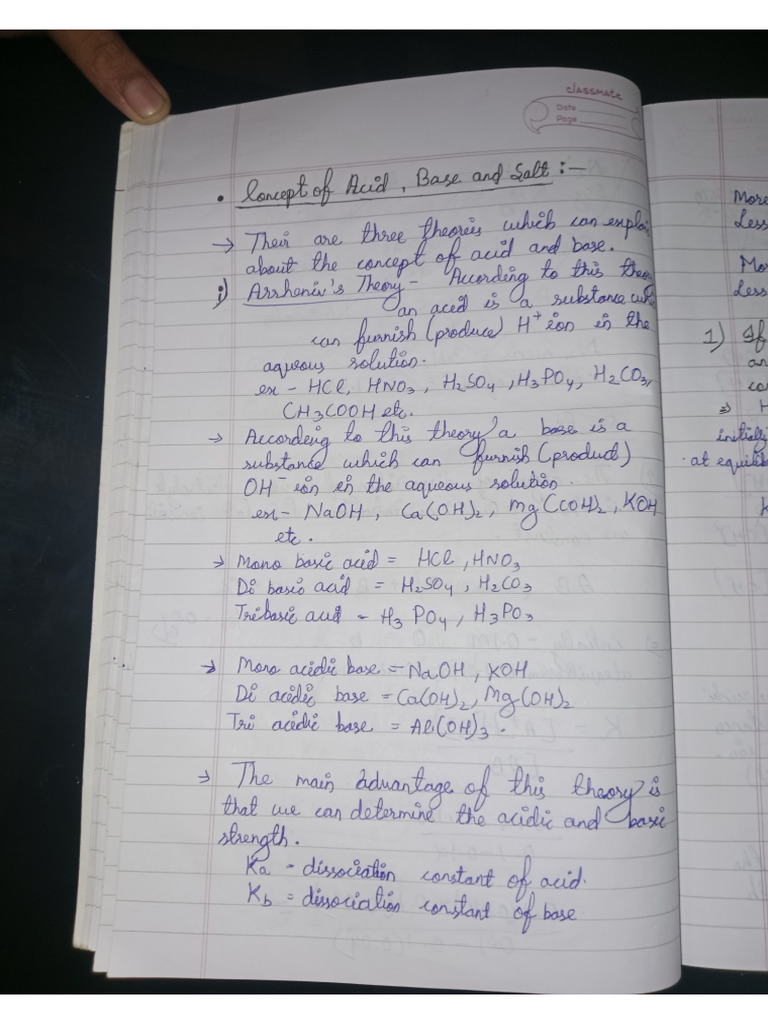 CLASSMATE
Date
Page
• Concept of Acid, Base and Salt :-
→ Their are three theories which can explain
about the concept of acid and base.
i) Arrheniu's Theory - According to this theory
an aced is a substance
can furnish (produce) H⁺ ion in the
aqueous solution.
ex - HCl, HNO₃, H₂SO₄, H₃PO₄, H₂CO₃,
CH₃COOH etc.
→ According to this theory a base is a
substance which can furnish (product)
OH⁻ ion in the aqueous solution.
ex - NaOH, Ca(OH)₂, Mg(OH)₂, KOH
etc.
→ Mono basic acid = HCl, HNO₃
Di basic acid = H₂SO₄, H₂CO₃
Tribasic acid - H₃ PO₄, H₃PO₃
→ Mono acidic base = NaOH, KOH
Di acidic base = Ca(OH)₂, Mg(OH)₂
Tri acidic base = Al(OH)₃.
→ The main advantage of this theory is
that we can determine the acidic and basic
strength.
Ka - dissociation constant of acid.
Kb = dissociation constant of base
More
Less
Mor
Less
1) If
an
co
⇒ H
initially
at equilib
K